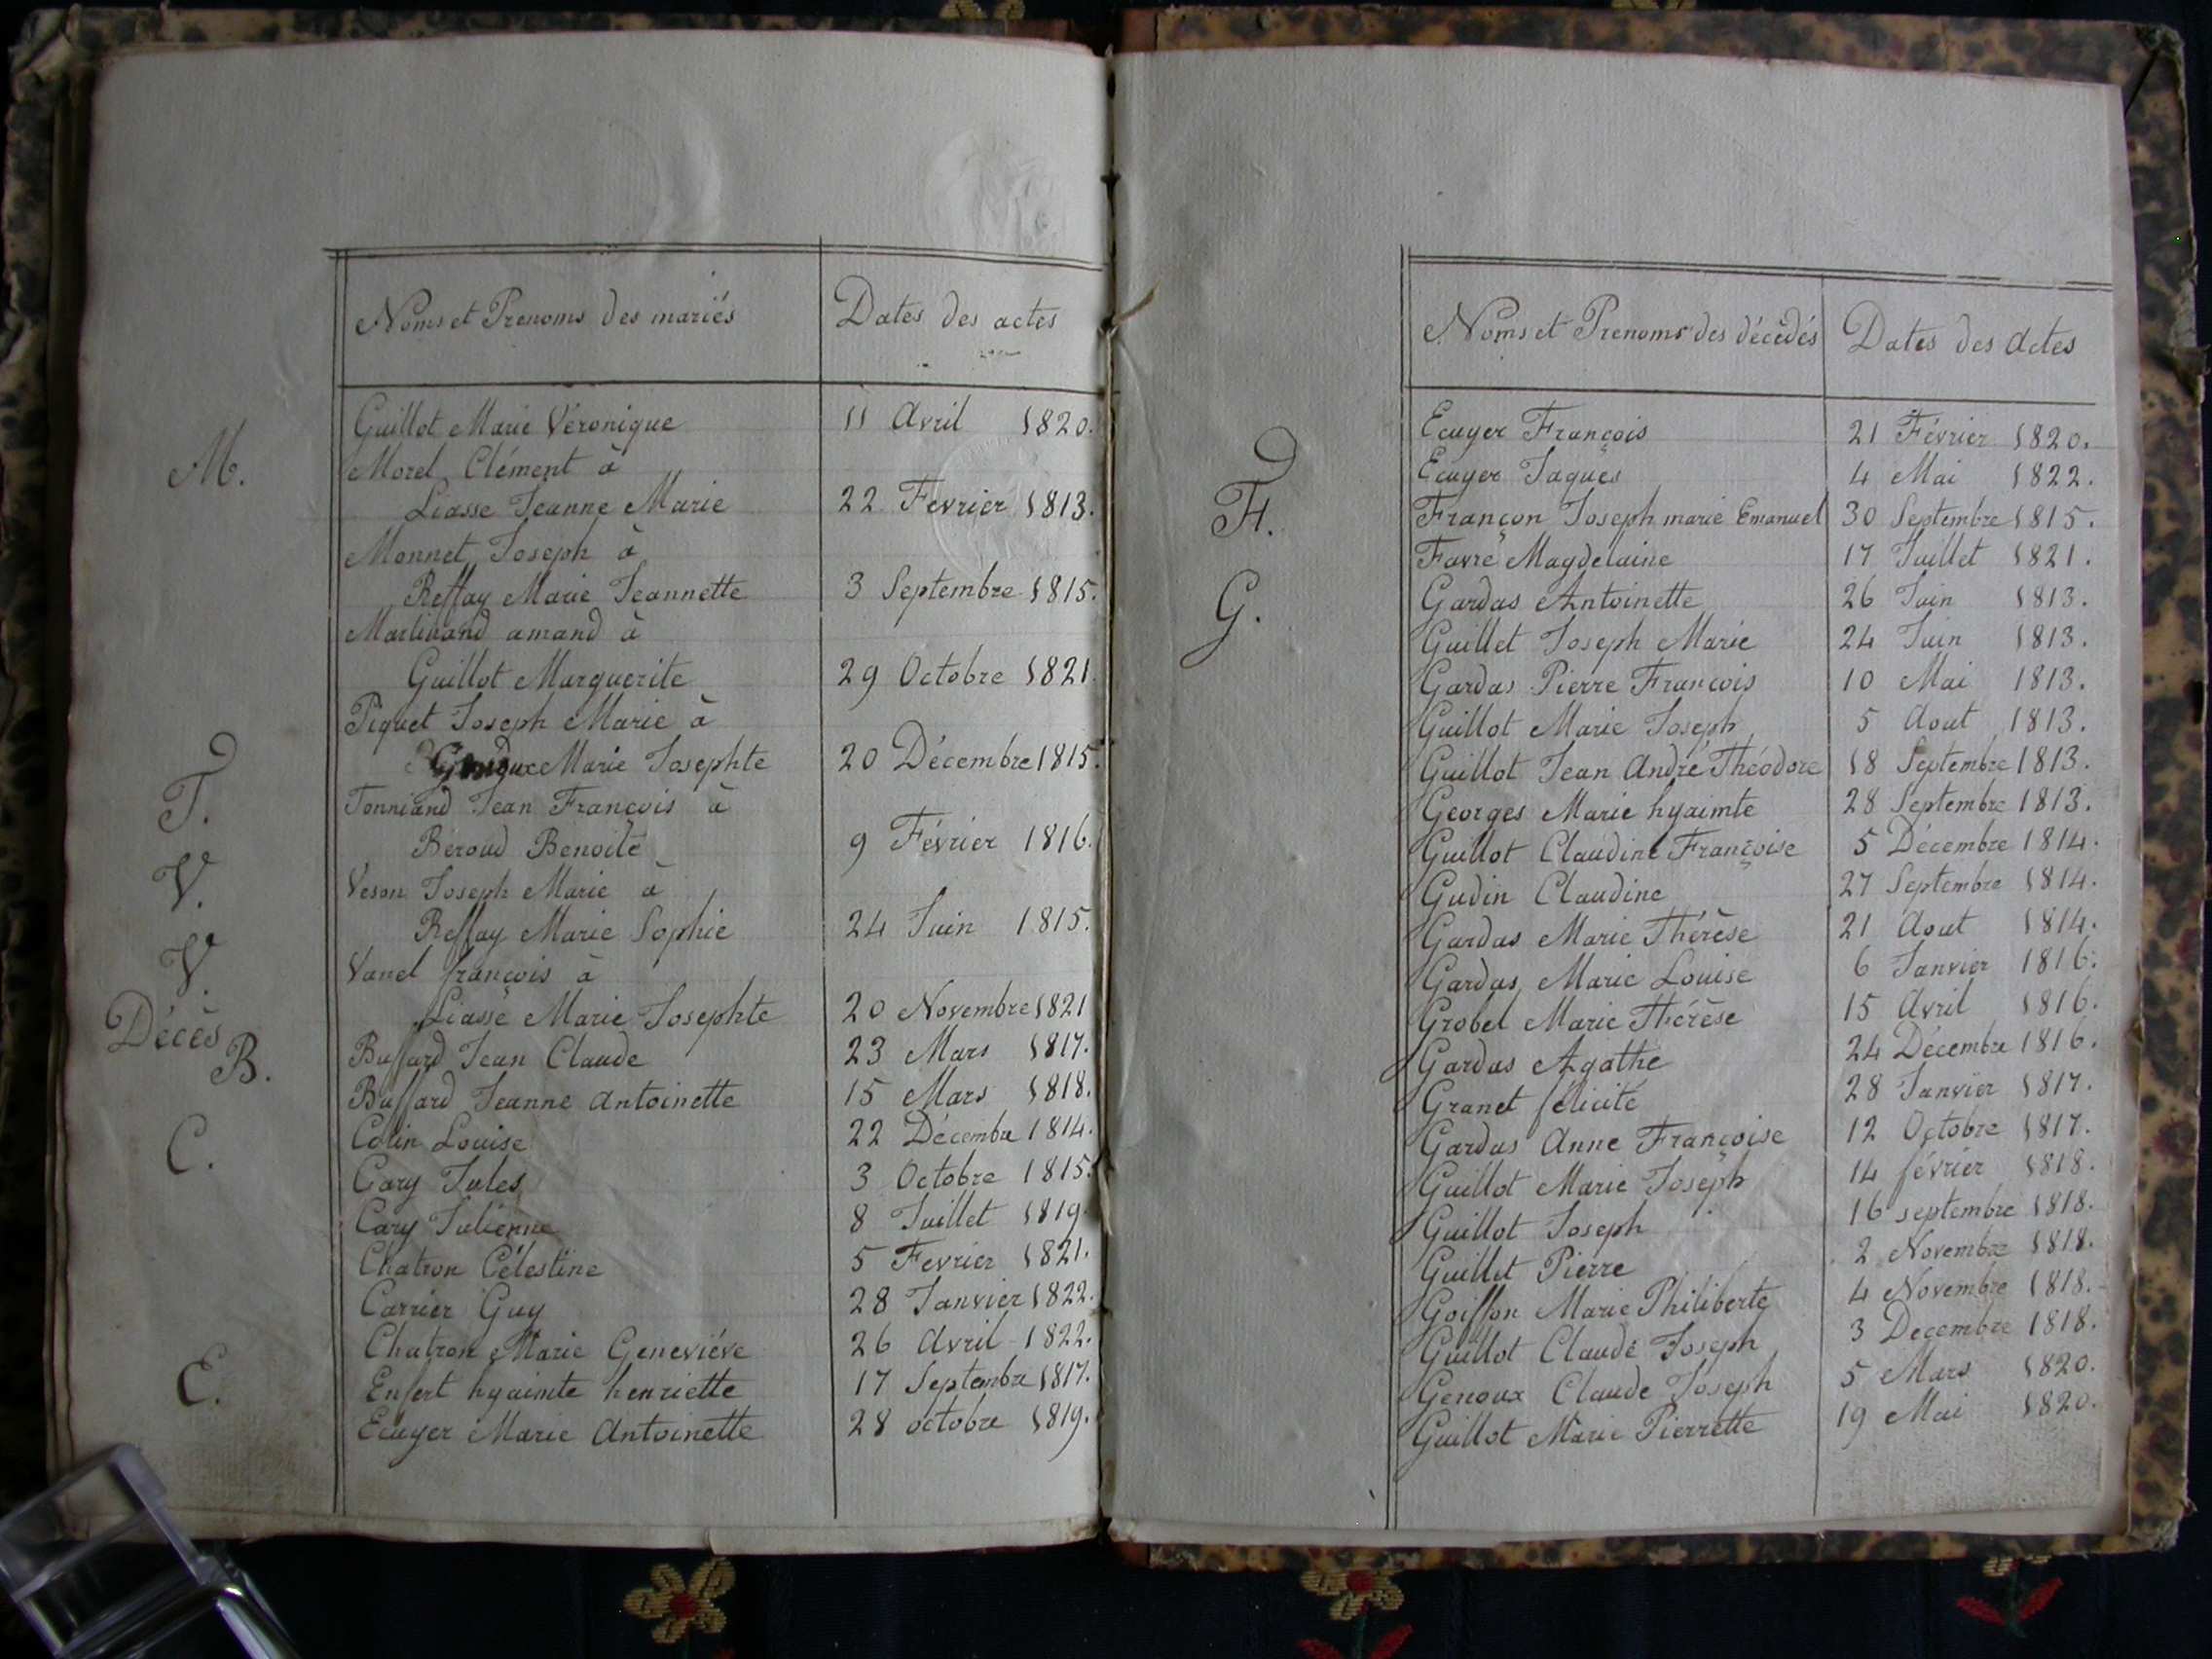 Noms et Prenoms des mariés Dates des actes
Guillot Marie Veronique 11 Avril 1820.
M. Morel Clément à
Liasse Jeanne Marie 22 Fevrier 1813.
Monnet Joseph à
Reffay Marie Jeannette 3 Septembre 1815.
Martinand amand à
Guillot Marguerite 29 Octobre 1821
Piquet Joseph Marie à
Marie Josephte 20 Décembre 1815.
T. Tonniand Jean François à
Béroud Benoite 9 Février 1816.
V. Veson Joseph Marie à
Reffay Marie Sophie 24 Juin 1815.
V. Vanel françois à
Liasse Marie Josephte 20 Novembre 1821
Décès B. Buffard Jean Claude 23 Mars 1817.
Buffard Jeanne Antoinette 15 Mars 1818.
C. Colin Louise 22 Décembre 1814.
Cary Jules 3 Octobre 1815.
Cary Julienne 8 Juillet 1819.
Chatron Célestine 5 Fevrier 1821.
Carrier Guy 28 Janvier 1822.
Chatron Marie Geneviéve 26 Avril 1822.
E. Enfert hyainte henriette 17 Septembre 1817.
Ecuyer Marie Antoinette 28 octobre 1819.
Noms et Prenoms des décédés Dates des Actes
Ecuyer François 21 Février 1820.
Ecuyer Jaques 4 Mai 1822.
F. Françon Joseph marie Emanuel 30 Septembre 1815.
Favre Magdelaine 17 Juillet 1821.
G. Gardas Antoinette 26 Juin 1813.
Guillet Joseph Marie 24 Juin 1813.
Gardas Pierre François 10 Mai 1813.
Guillot Marie Joseph 5 Aout 1813.
Guillot Jean André Théodore 18 Septembre 1813.
Georges Marie hyainte 28 Septembre 1813.
Guillot Claudine Françoise 5 Décembre 1814.
Gudin Claudine 27 Septembre 1814.
Gardas Marie Thérèse 21 Aout 1814.
Gardas Marie Louise 6 Janvier 1816.
Grobel Marie Thérèse 15 Avril 1816.
Gardas Agathe 24 Décembre 1816.
Granet félicité 28 Janvier 1817.
Gardas Anne Françoise 12 Octobre 1817.
Guillot Marie Joseph 14 février 1818.
Guillot Joseph 16 septembre 1818.
Guillet Pierre 2 Novembre 1818.
Goiffon Marie Philiberte 4 Novembre 1818.
Guillot Claude Joseph 3 Decembre 1818.
Genoux Claude Joseph 5 Mars 1820.
Guillot Marie Pierrette 19 Mai 1820.